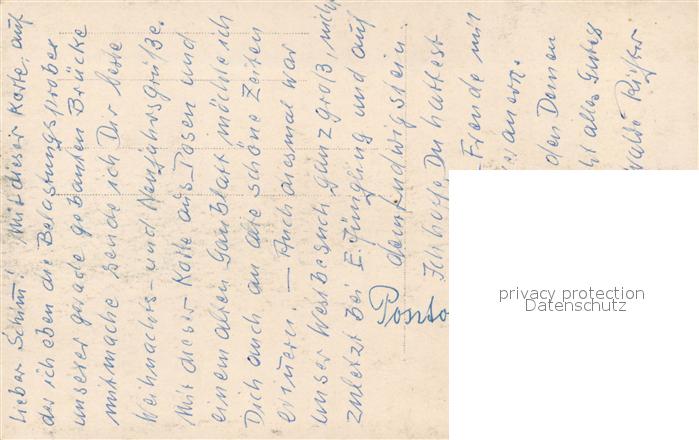 Lieber Schimi! Mit dieser Karte, auf
der ich eben die Belastungsprobe
unserer gerade gebauten Brücke
mitmache sende ich Dir beste
Weihnachts- und Neujahrsgrüße.
Mit dieser Karte aus Posen und
einem alten Gaublatt möchte ich
Dich auch an alte schöne Zeiten
erinnern. — Auch diesmal war
unser Westbesuch ganz groß,
zuletzt bei E. Jüngling und auf
dem Ludwigstein
Ich hoffe Du hattest
Freude mit
den Deinen
alles Gutes
Posto
privacy protection
Datenschutz